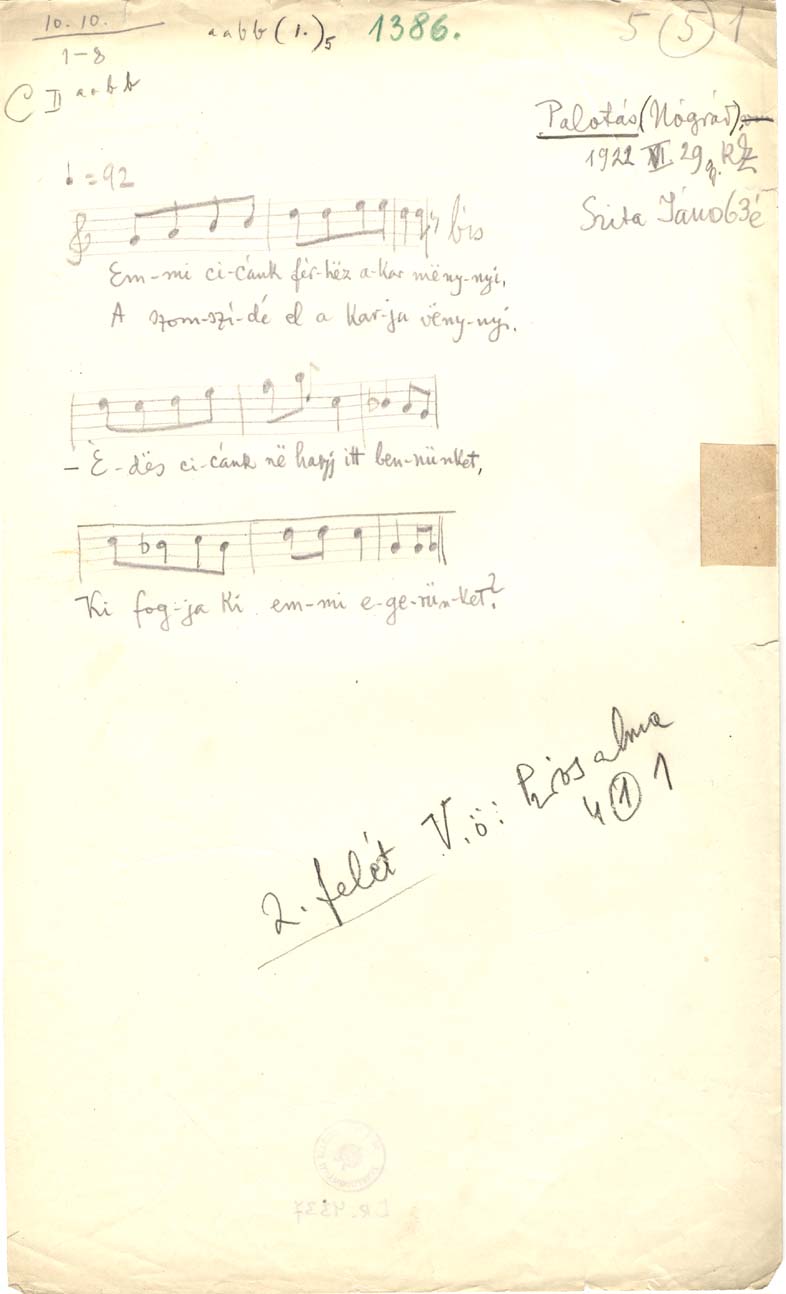 10. 10.
1–8
aabb (1.)5 1386.
5 (5) 1
C II aabb
Palotás (Nógrád)
1922 VI. 29
Szita János 63é
♩ = 92
bis
Em-mi ci-cánk fér-hëz a-kar mëny-nyi,
A szom-szí-dé el a kar-ja vëny-nyi.
– È-dës ci-cánk në hagyj itt ben-nünket,
Ki fog-ja ki em-mi e-ge-rün-ket?
2. felét V.ö: Piros alma
4 (1) 1